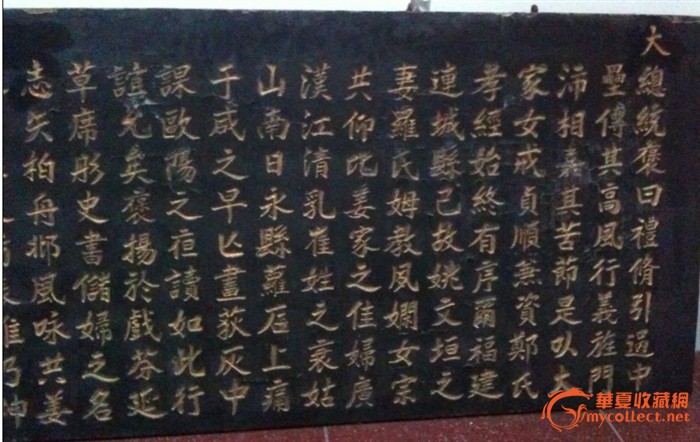 大總統褒曰禮脩引過中
壘傳其高風行義旌門
沛相嘉其苦節是以大
家女戒貞順無資鄭氏
孝經始終有序爾福建
連城縣已故姚文垣之
妻羅氏姆教夙嫻女宗
共仰比姜家之佳婦廣
漢江清乳崔姓之衰姑
山南日永縣蘿石上痛
于咸之早亡畫荻灰中
課歐陽之夜讀如此行
誼允矣褒揚於戲苾延
草席彤史書儲婦之名
志矢柏舟鄘風咏共姜
華夏收藏網
mycollect.net